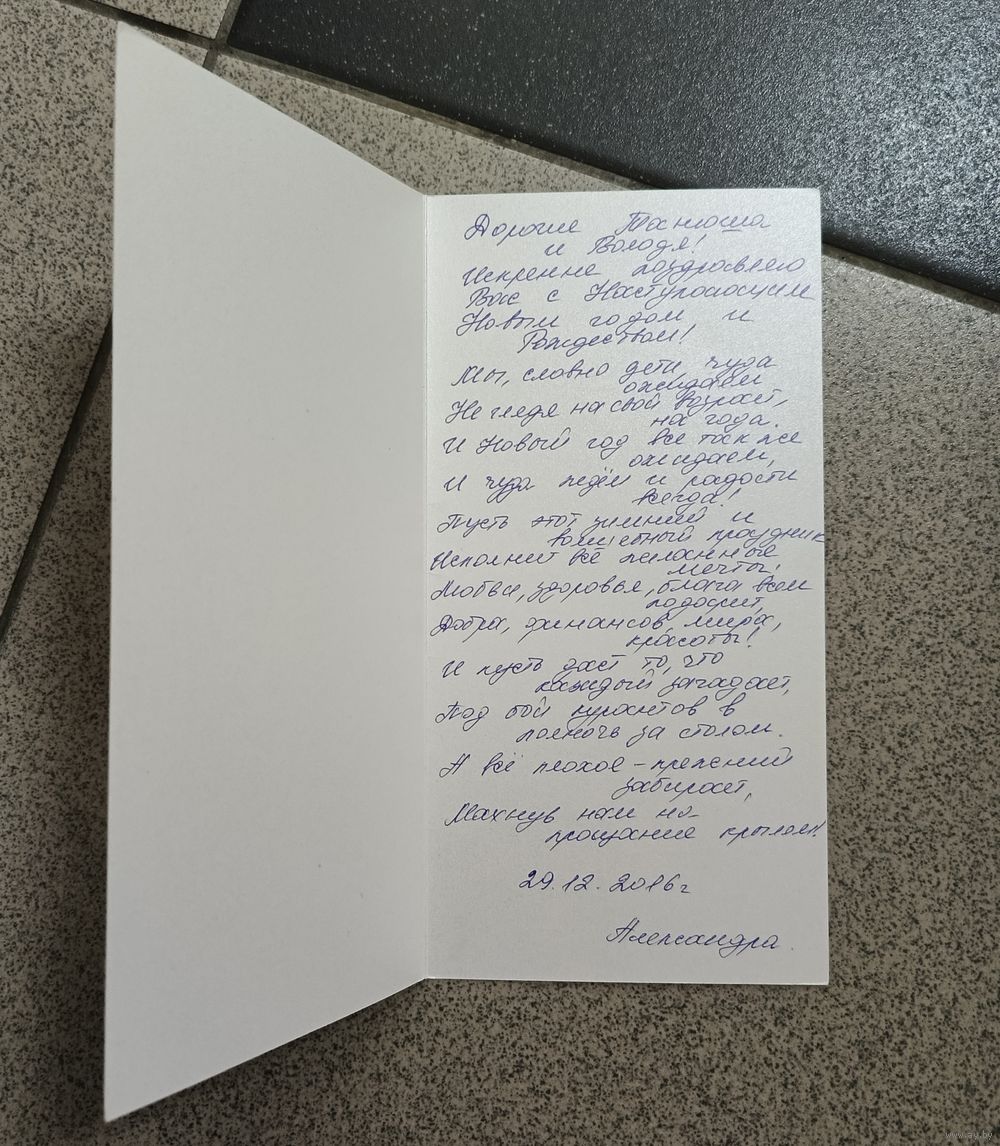 Дорогие Танюша
и Володя!
Искренне поздравляю
Вас с Наступающим
Новым годом и
Рождеством!
Мы, словно дети чуда
ожидаем
Не глядя на свой возраст,
на года.
И Новый год все так же
ожидаем,
И чуда ждём и радости
всегда!
Пусть этот зимний и
волшебный праздник
Исполнит всё желанные
мечты!
Любви, здоровья, блага всем
подарит,
Добра, финансов, мира,
красоты!
И пусть даст то, что
каждый загадает,
Под бой курантов в
полночь за столом.
А всё плохое - прежний
забирает,
Махнув нам на-
прощание крылом!
29.12.2016г
Александра.
www.ay.by